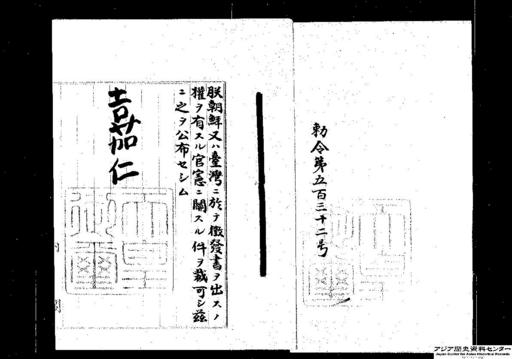 勅令第五百三十二号
朕朝鮮又ハ臺灣ニ於テ徴發書ヲ出スノ
權ヲ有スル官憲ニ關スル件ヲ裁可シ茲
ニ之ヲ公布セシム
嘉仁
天皇
御璽
アジア歴史資料センター
Japan Center for Asian Historical Records